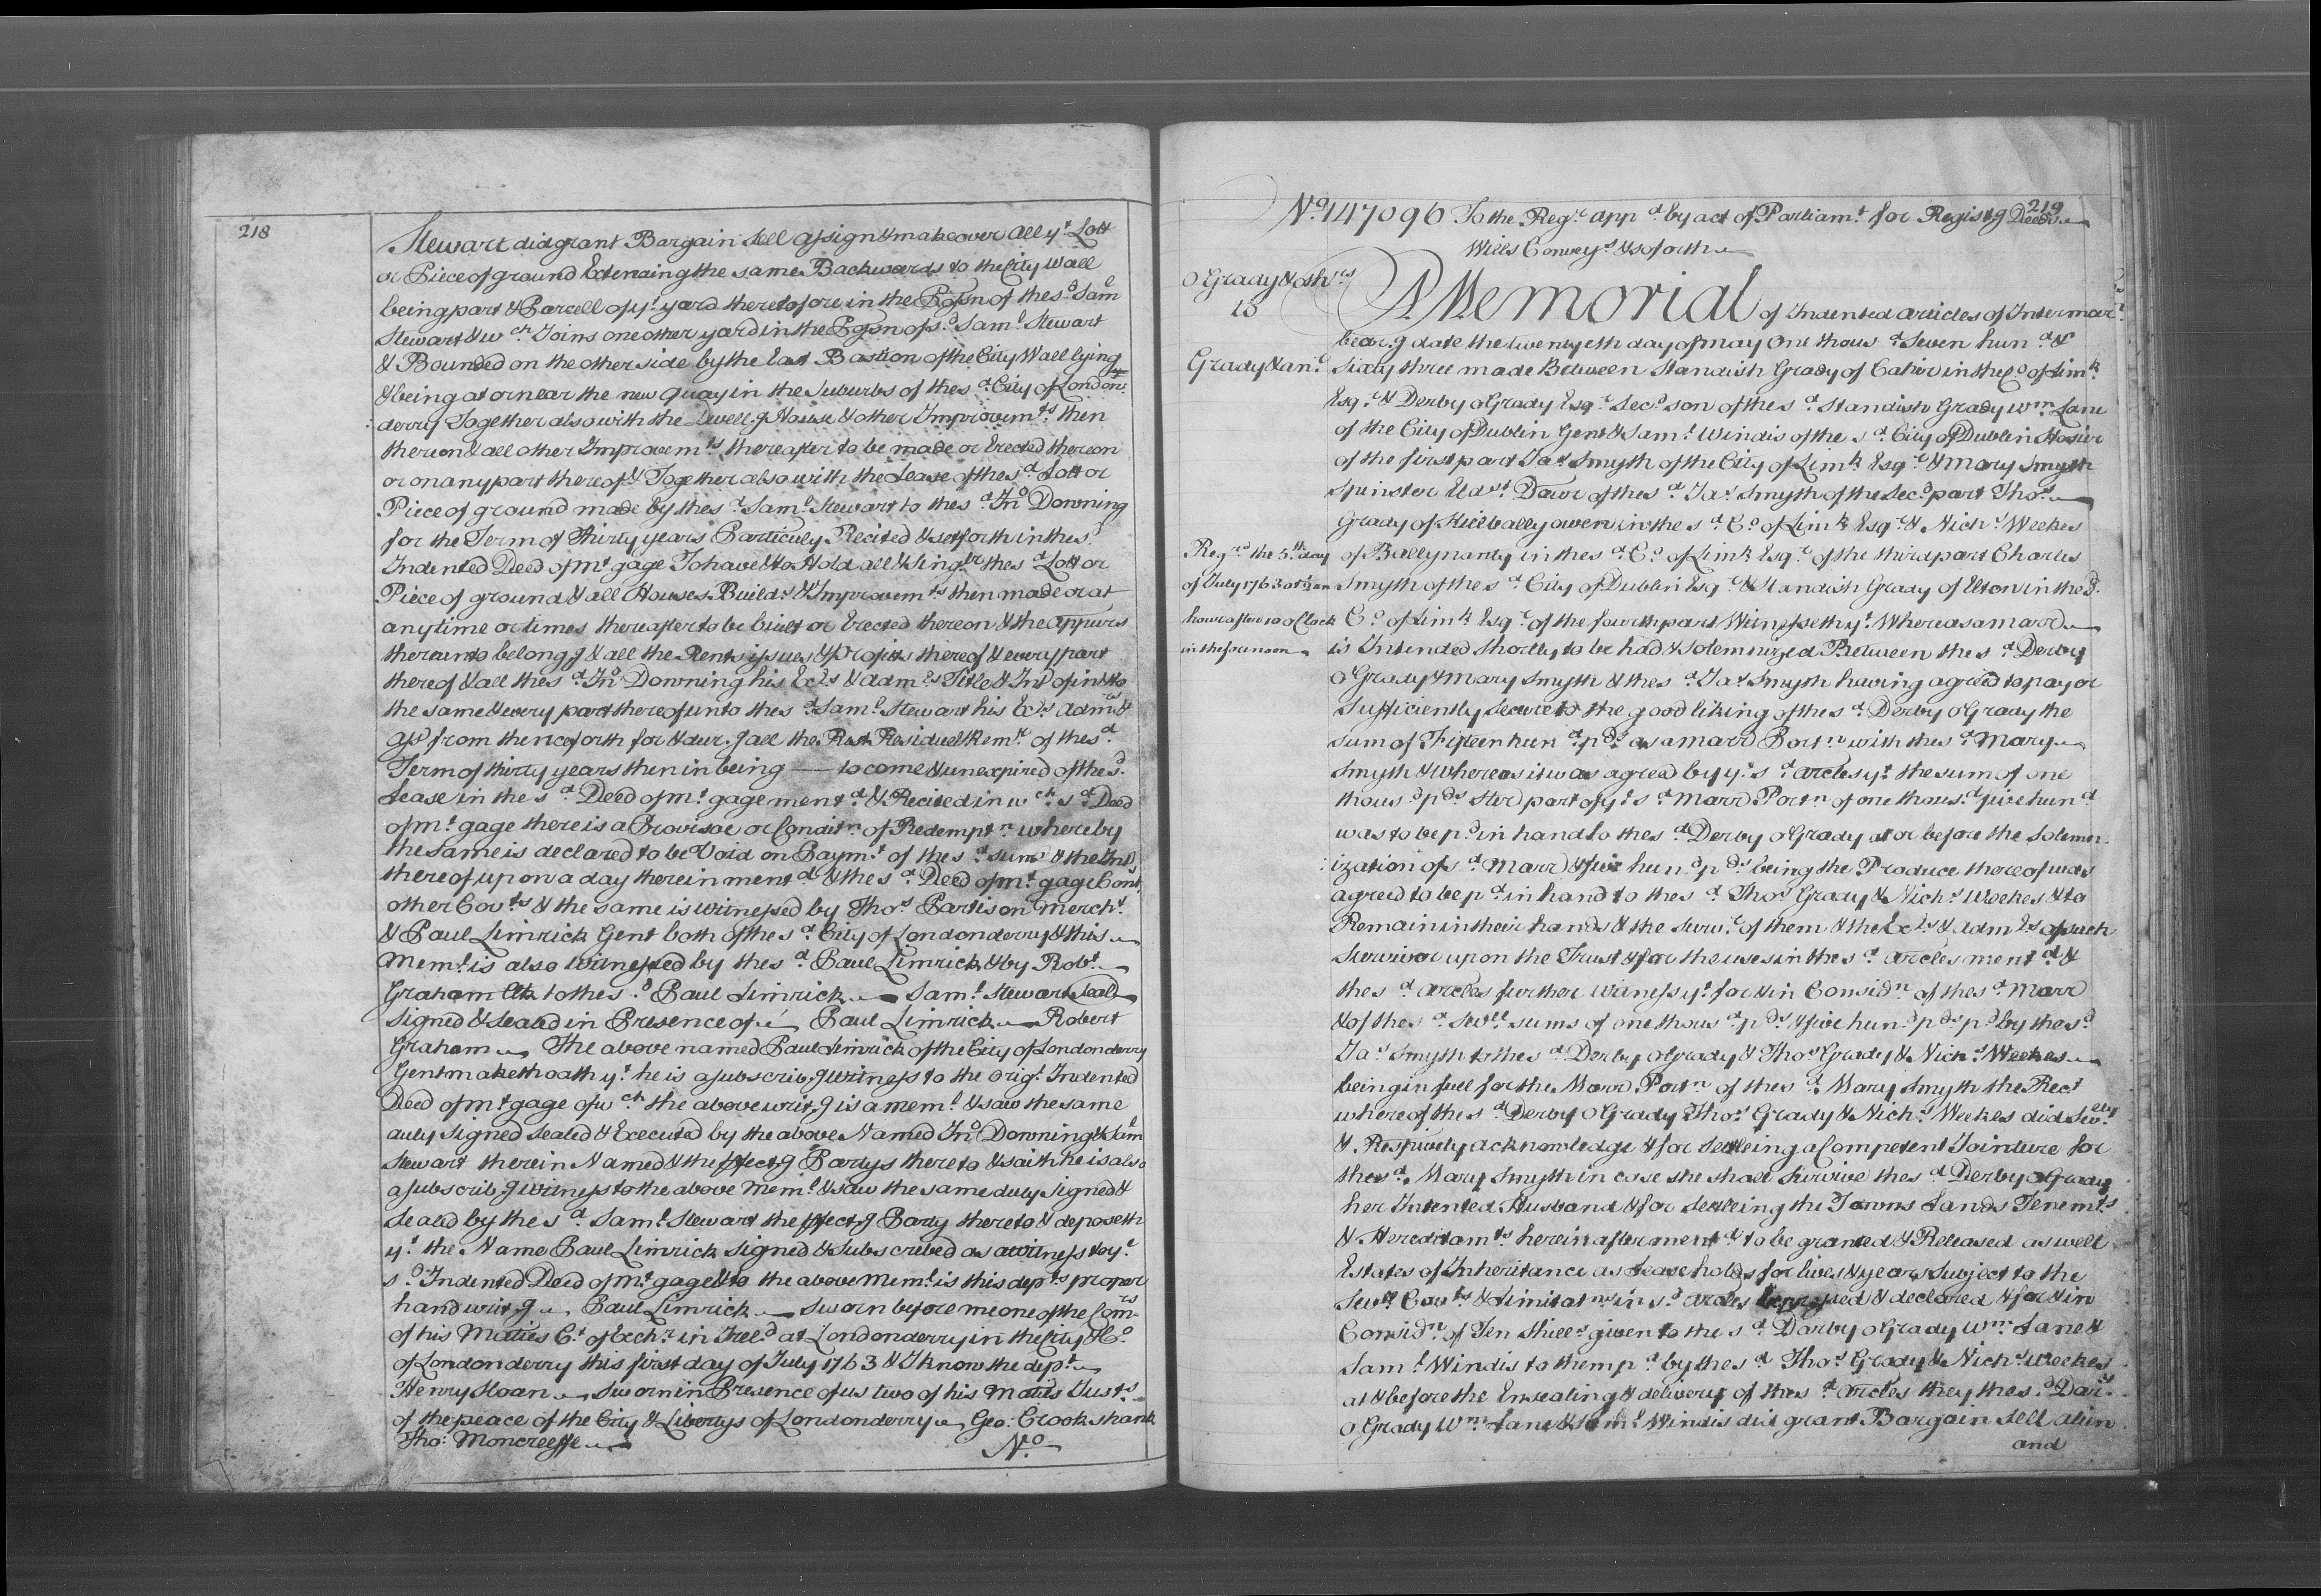 218
Stewart did grant Bargain Sell assign & make over all yt. Lott
or Piece of ground Extending the same Backwards to the City Wall
being part & Parcell of yt. yard theretofore in the Posson of the sd. Saml
Stewart & wch. Joins one other yard in the Posson of sd. Saml. Stewart
& Bounded on the other side by the East Bastion of the City Wall lying
& being at or near the new Quay in the Suburbs of the sd. City of London-
derry Together also with the Dwellg. House & other Improvemts. then
thereon & all other Improvemts. thereafter to be made or Erected thereon
or on any part thereof & Together also with the Lease of the sd. Lott or
Piece of ground made by the sd. Saml. Stewart to the sd. Jno. Downing
for the Term of Thirty years Particuly Recited & set forth in the sd.
Indented Deed of Mt gage To have & to Hold all & Singlr the sd. Lott or
Piece of ground & all Houses Builds. & Improvemts then made or at
any time or times thereafter to be built or Erected thereon & the appurs
thereunto belongg & all the Rents issues & profits thereof & every part
thereof & all the sd. Jno. Downing his Exrs & admrs Title & Int of in & to
the same & every part thereof unto the sd. Saml. Stewart his Exrs admrs &
ass from thenceforth for & dur.g all the Rest Residue & Remr. of the sd.
Term of thirty years then in being — to come & unexpired of the sd.
Lease in the sd. Deed of Mt. gage mentd. & Recited in wch. sd. Deed
of Mt gage there is a Provisoe or Conditn. of Redemptn. whereby
the same is declared to be Void on Paymt. of the sd. sum & the Int.
thereof upon a day therein mentd & the sd. Deed of Mt gage Conts.
other Covts & the same is witnessed by Thos. Partison Mercht.
& Paul Limrick Gent both of the sd. City of Londonderry & this
Meml. is also Witnessed by the sd. Paul Limrick & by Robt.
Graham Clk to the sd. Paul Limrick Saml. Stewart Seal
Signed & Sealed in Presence of Paul Limrick Robert
Graham The above named Paul Limrick of the City of Londonderry
Gent maketh oath yt. he is a subscrib.g witness to the Origl. Indented
Deed of Mt gage of wch. the above writ.g is a meml. & saw the same
duly Signed Sealed & Executed by the above Named Jno. Downing & Saml
Stewart therein Named & the pfectg Partys thereto & saith he is also
a subscrib.g witness to the above Meml. & saw the same duly Signed &
Sealed by the sd. Saml. Stewart the pfect.g Party thereto & deposeth
yt. the Name Paul Limrick Signed & Subscribed as a witness to ye.
sd. Indented Deed of Mt gage & to the above Meml. is this depts proper
handwrit.g Paul Limrick Sworn before me one of the Comrs
of his Maties Ct. of Exchr. in Ireld. at Londonderry in the City & Co.
of Londonderry this first day of July 1763 & I know the dept.
Henry Sloan Sworn in Presence of us two of his Maties Justs
of the peace of the City & Libertys of Londonderry Geo: Crookshank
Tho: Moncreiffe No.
219
No. 147096 To the Regr. appd. by act of Parliamt. for Registg Deeds
Wills Conveys & so forth
O Grady & othrs
to
Grady & anr.
Regrd the 5th. day
of July 1763 at
hour after 10 o Clock
in the forenoon
A Memorial of Indented articles of Intermar
bear.g date the twentyeth day of may One thousd. Seven hund. &
Sixty three made Between Standish Grady of Cahir in the Co. of Limk.
Esqr. & Derby oGrady Esqr. Secd. son of the sd. Standish Grady Wm. Lane
of the City of Dublin Gent & Saml. Windis of the sd. City of Dublin Hosier
of the first part Jas. Smyth of the City of Limk Esqr. & Mary Smyth
Spinster Eldst. Dawr of the sd. Jas. Smyth of the Secd. part Thos.
Grady of Killballyowen in the sd. Co. of Limk Esqr. & Nichs. Weekes
of Ballynanty in the sd. Co. of Limk Esqr. of the third part Charles
Smyth of the sd. City of Dublin Esqr. & Standish Grady of Elton in the sd.
Co. of Limk Esqr. of the fourth part Witnesseth yt. Whereas a marr
is Intended shortly to be had & solemnized Between the sd. Derby
o Grady & Mary Smyth & the sd. Jas. Smyth having agreed to pay or
Sufficiently Secure to the good liking of the sd. Derby oGrady the
sum of Fifteen hund. pds as a marr Portn. with the sd. Mary
Smyth & Whereas it was agreed by ye. sd. arcles yt. the sum of one
thousd. pds. Ster part of ye. sd. Marr Portn. of one thousd. five hund.
was to be pd. in hand to the sd. Derby oGrady at or before the Solemn-
ization of sd. Marr & five hund. pds being the Produce thereof was
agreed to be pd. in hand to the sd. Thos. Grady & Nichs. Weekes & to
Remain in their hands & the Survr. of them & the Exrs & admrs of such
Survivor upon the Trust & for the uses in the sd. arcles mentd. &
the sd. arcles further witness yt. for & in Considn. of the sd. Marr
& of the sd. Sevll sums of one thousd. pds & five hund. pds pd. by the sd.
Jas. Smyth to the sd. Derby oGrady & Thos. Grady & Nichs. Weekes
being in full for the Marr Portn of the sd. Mary Smyth the Rect
whereof the sd. Derby oGrady Thos. Grady & Nichs. Weekes did Sevlly
& Respively acknowledge & for Settleing a Competent Jointure for
the sd. Mary Smyth in case she shall Survive the sd. Derby oGrady
her Intented Husband & for Settleing the Towns Lands Tenemts
& Hereditamts herein after mentd. to be granted & Released as well
Estates of Inheritance as Leaseholds for lives & years Subject to the
Sevll Covts & Limitatns in sd. arcles Expressed & declared & for & in
Considn. of Ten Shills given to the sd. Darby oGrady Wm. Lane &
Saml. Windis to them pd. by the sd. Thos. Grady & Nichs. Weekes
at & before the Ensealing & delivery of the sd. arcles they the sd. Dary.
o Grady Wm. Lane & Saml. Windis did grant Bargain Sell alien
and